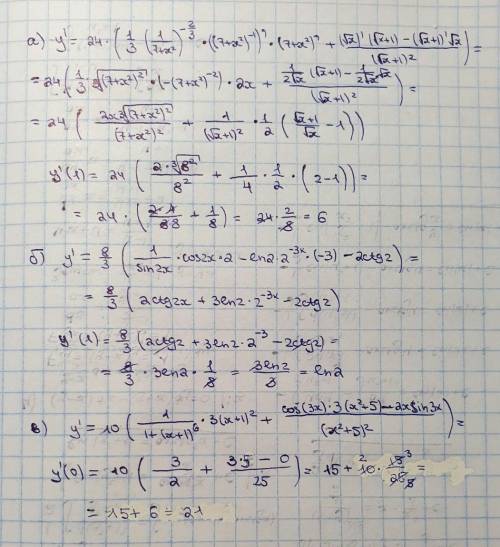 а) y' = 24·(1/3 (1/(7+x²))^(-2/3) · ((7+x²)^(-1))' · (7+x²)' + ((√x)'(√x+1) - (√x+1)'√x)/(√x+1)²) =
= 24(1/3 · ∛((7+x²)²) · (-(7+x²)^(-2)) · 2x + (1/(2√x) (√x+1) - 1/(2√x) √x)/(√x+1)²) =
= 24(2x∛((7+x²)²)/(7+x²)² + 1/(√x+1)² · 1/2 ((√x+1)/√x - 1))
y'(1) = 24(2·∛(8²)/8² + 1/4 · 1/2 · (2-1)) =
= 24·(2·4/88 + 1/8) = 24·2/8 = 6
б) y' = 8/3 (1/sin2x · cos2x·2 - ln2·2^(-3x)·(-3) - 2ctg2) =
= 8/3 (2ctg2x + 3ln2·2^(-3x) - 2ctg2)
y'(1) = 8/3 (2ctg2 + 3ln2·2^(-3) - 2ctg2) =
= 8/3 · 3ln2 · 1/8 = 3ln2/3 = ln2
в) y' = 10(1/(1+(x+1)⁶) · 3(x+1)² + (cos(3x)·3(x²+5) - 2x sin3x)/(x²+5)²) =
y'(0) = 10(3/2 + (3·5 - 0)/25) = 15 + 10·15/25 =
= 15 + 6 = 21